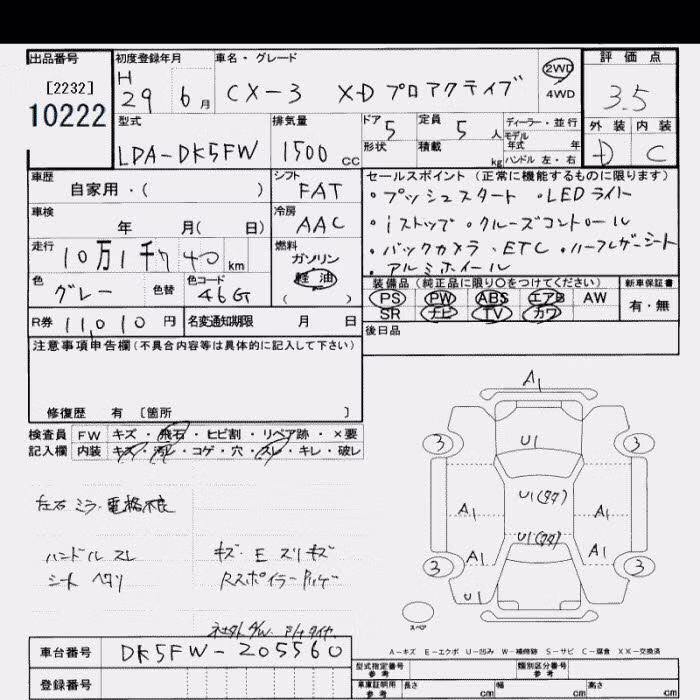 出品番号 初度登録年月 車名・グレード 2WD 評価点
[2232] H 29 6月 CX-3 XD プロアクティブ 4WD 3.5
10222
型式 排気量 ドア 5 定員 5 人 ディーラー・並行 外装 内装
モデル
年式 年
LDA-DK5FW 1500 CC 形状 積載 kg ハンドル 左・右 D C
車歴 シフト セールスポイント(正常に機能するものに限ります)
自家用・( ) FAT ・プッシュスタート ・LEDライト
車検 冷房 ・iストップ ・クルーズコントロール
年 月( 日) AAC
走行 燃料 ・バックカメラ ・ETC ・ハーフレザーシート
10万1千740 km ガソリン ・アルミホイール
軽油
( )
色 色替 色コード 装備品(純正品に限り○をつけてください) 新車保証書
グレー 46G PS PW ABS エアB AW 有・無
SR ナビ TV カワ
R券 11,010 円 名変通知期限 月 日 後日品
注意事項申告欄(不具合内容等は具体的に記入して下さい)
修復歴 有 [箇所 ]
検査員 FW キズ・飛石・ヒビ割・リペア跡・×要
記入欄 内装 キズ・汚レ・コゲ・穴・スレ・キレ・破レ
A1
3 U1 3
U1(タタ)
A1 A1
U1(タタ)
A1 A1
3 3
U1
スペア
左右 ミラー電格不良
ハンドル スレ キズ・E スリキズ
シート ヘタリ
A-キズ E-エクボ U-凹み W-補修跡 S-サビ C-腐食 XX-交換済
車台番号 DK5FW-205560
登録番号
型式指定番号 参考 類別区分番号 参考
車庫証明用 参考 長さ cm 幅 cm 高さ cm